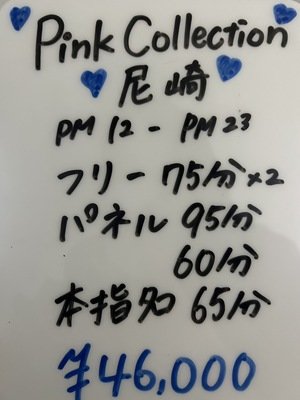 Pink Collection
尼崎
PM 12 - PM 23
フリー 75分×2
パネル 95分
60分
本指名 65分
¥46,000